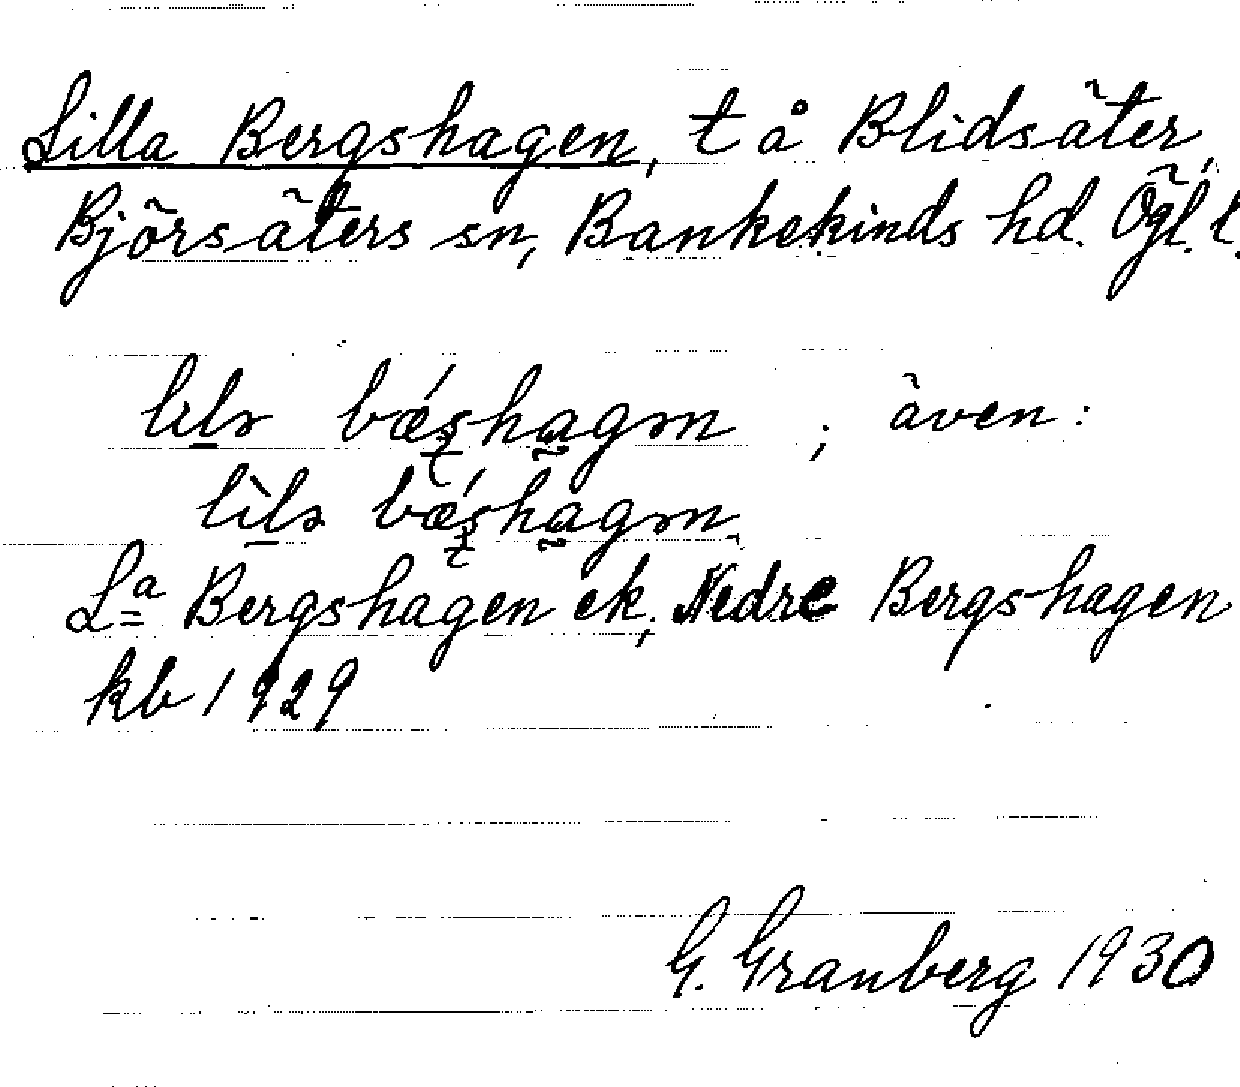 Lilla Bergshagen, t å Blidsäter,
Björsäters sn, Bankekinds hd. Ögl. l.
lılə bǽʂhagən ; även:
lìlə bǽʂhagən.
Lª Bergshagen ek, Nedre Bergshagen
kb 1929
G. Granberg 1930